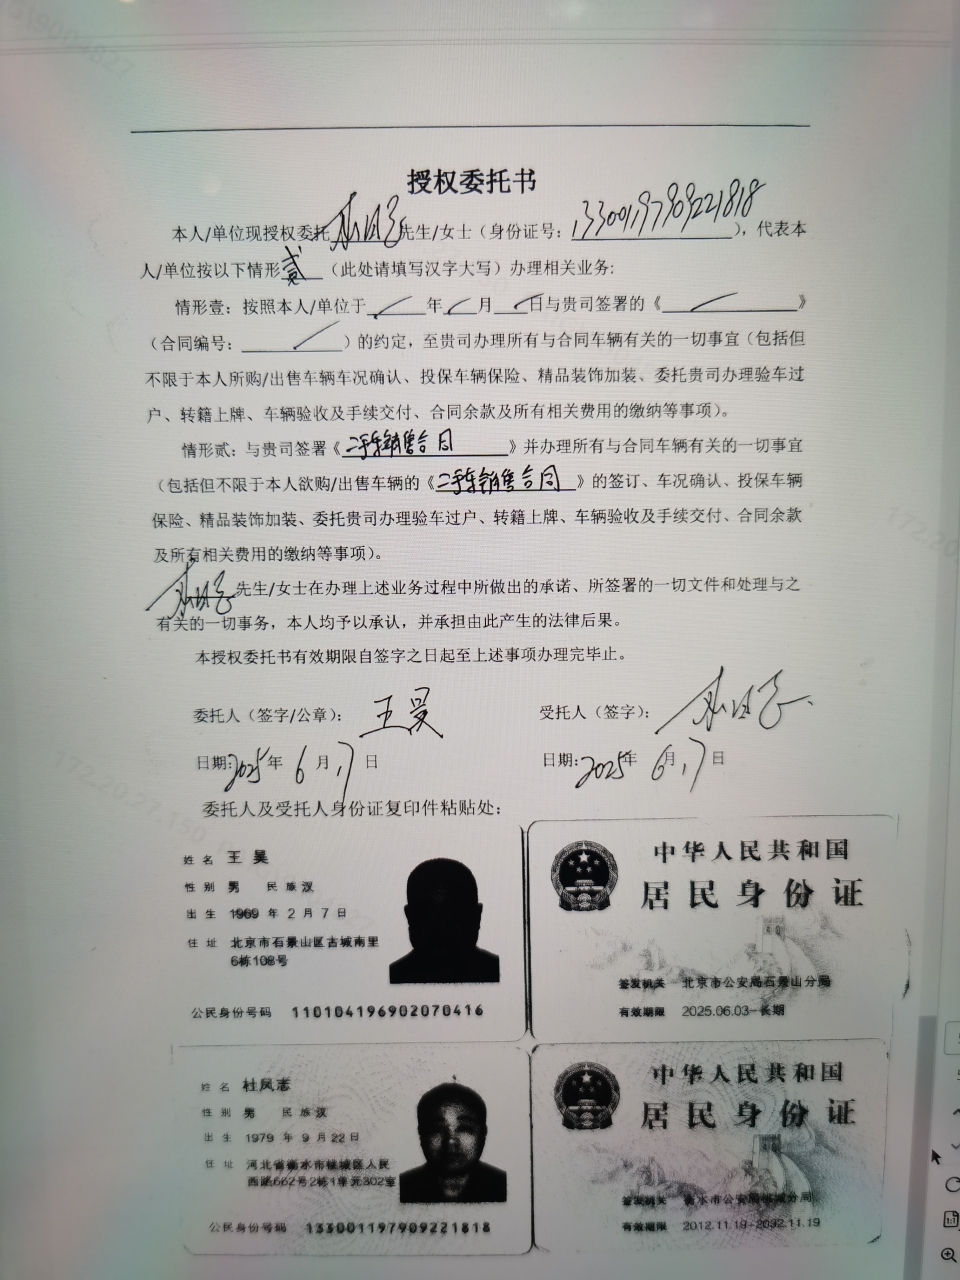 授权委托书
本人/单位现授权委托 先生/女士（身份证号：133001197909221818），代表本
人/单位按以下情形贰（此处请填写汉字大写）办理相关业务：
情形壹：按照本人/单位于 年 月 日与贵司签署的《 》
（合同编号： ）的约定，至贵司办理所有与合同车辆有关的一切事宜（包括但
不限于本人所购/出售车辆车况确认、投保车辆保险、精品装饰加装、委托贵司办理验车过
户、转籍上牌、车辆验收及手续交付、合同余款及所有相关费用的缴纳等事项）。
情形贰：与贵司签署《二手车销售合同》并办理所有与合同车辆有关的一切事宜
（包括但不限于本人欲购/出售车辆的《二手车销售合同》的签订、车况确认、投保车辆
保险、精品装饰加装、委托贵司办理验车过户、转籍上牌、车辆验收及手续交付、合同余款
及所有相关费用的缴纳等事项）。
先生/女士在办理上述业务过程中所做出的承诺、所签署的一切文件和处理与之
有关的一切事务，本人均予以承认，并承担由此产生的法律后果。
本授权委托书有效期限自签字之日起至上述事项办理完毕止。
委托人（签字/公章）：王昊 受托人（签字）：
日期：2025年6月17日 日期：2025年6月17日
委托人及受托人身份证复印件粘贴处：
姓名 王昊
性别 男 民族 汉
出生 1969年2月7日
住址 北京市石景山区古城南里
6栋108号
公民身份号码 110104196902070416
中华人民共和国
居民身份证
签发机关 北京市公安局石景山分局
有效期限 2025.06.03-长期
姓名 杜风志
性别 男 民族 汉
出生 1979年9月22日
住址 河北省衡水市桃城区人民
西路662号2栋1单元302室
公民身份号码 133001197909221818
中华人民共和国
居民身份证
签发机关 衡水市公安局桃城分局
有效期限 2012.11.19-2032.11.19
172.20.27.150